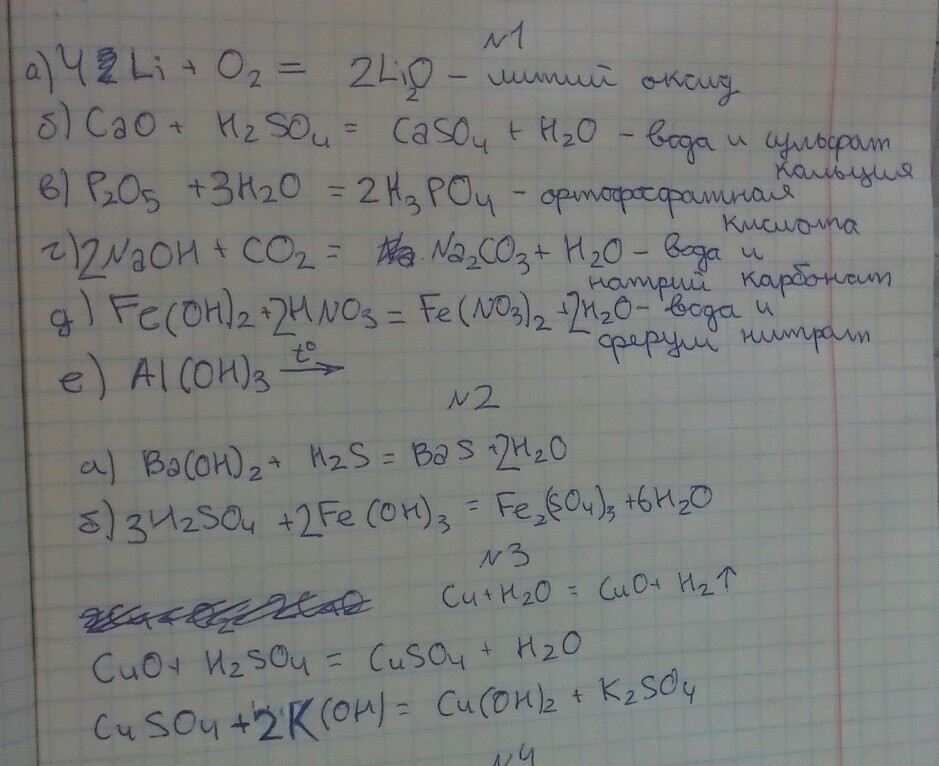 №1
а) 4Li + O2 = 2Li2O - литий оксид
б) CaO + H2SO4 = CaSO4 + H2O - вода и сульфат
кальция
в) P2O5 + 3H2O = 2H3PO4 - ортофосфатная
кислота
г) 2NaOH + CO2 = Na2CO3 + H2O - вода и
натрий карбонат
д) Fe(OH)2 + 2HNO3 = Fe(NO3)2 + 2H2O - вода и
ферум нитрат
е) Al(OH)3 t° →
№2
а) Ba(OH)2 + H2S = BaS + 2H2O
б) 3H2SO4 + 2Fe(OH)3 = Fe2(SO4)3 + 6H2O
№3
Cu + H2O = CuO + H2↑
CuO + H2SO4 = CuSO4 + H2O
CuSO4 + 2K(OH) = Cu(OH)2 + K2SO4
№4